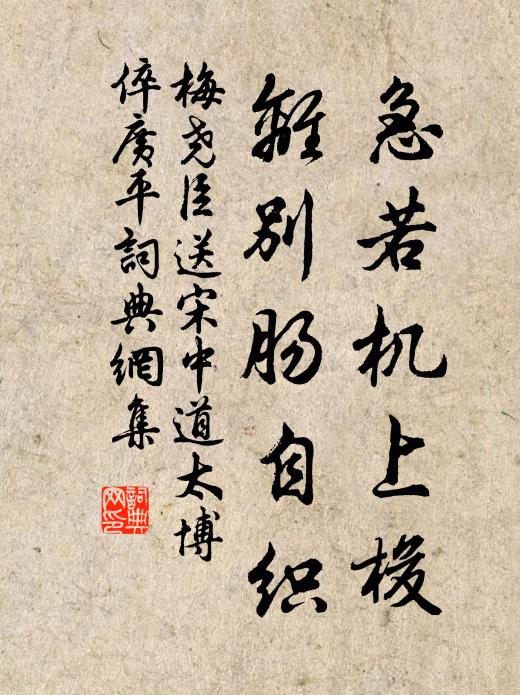 急若机上梭
離别肠自织
梅尧臣送宋中道太博
倅廣平詞典網集
詞典网印